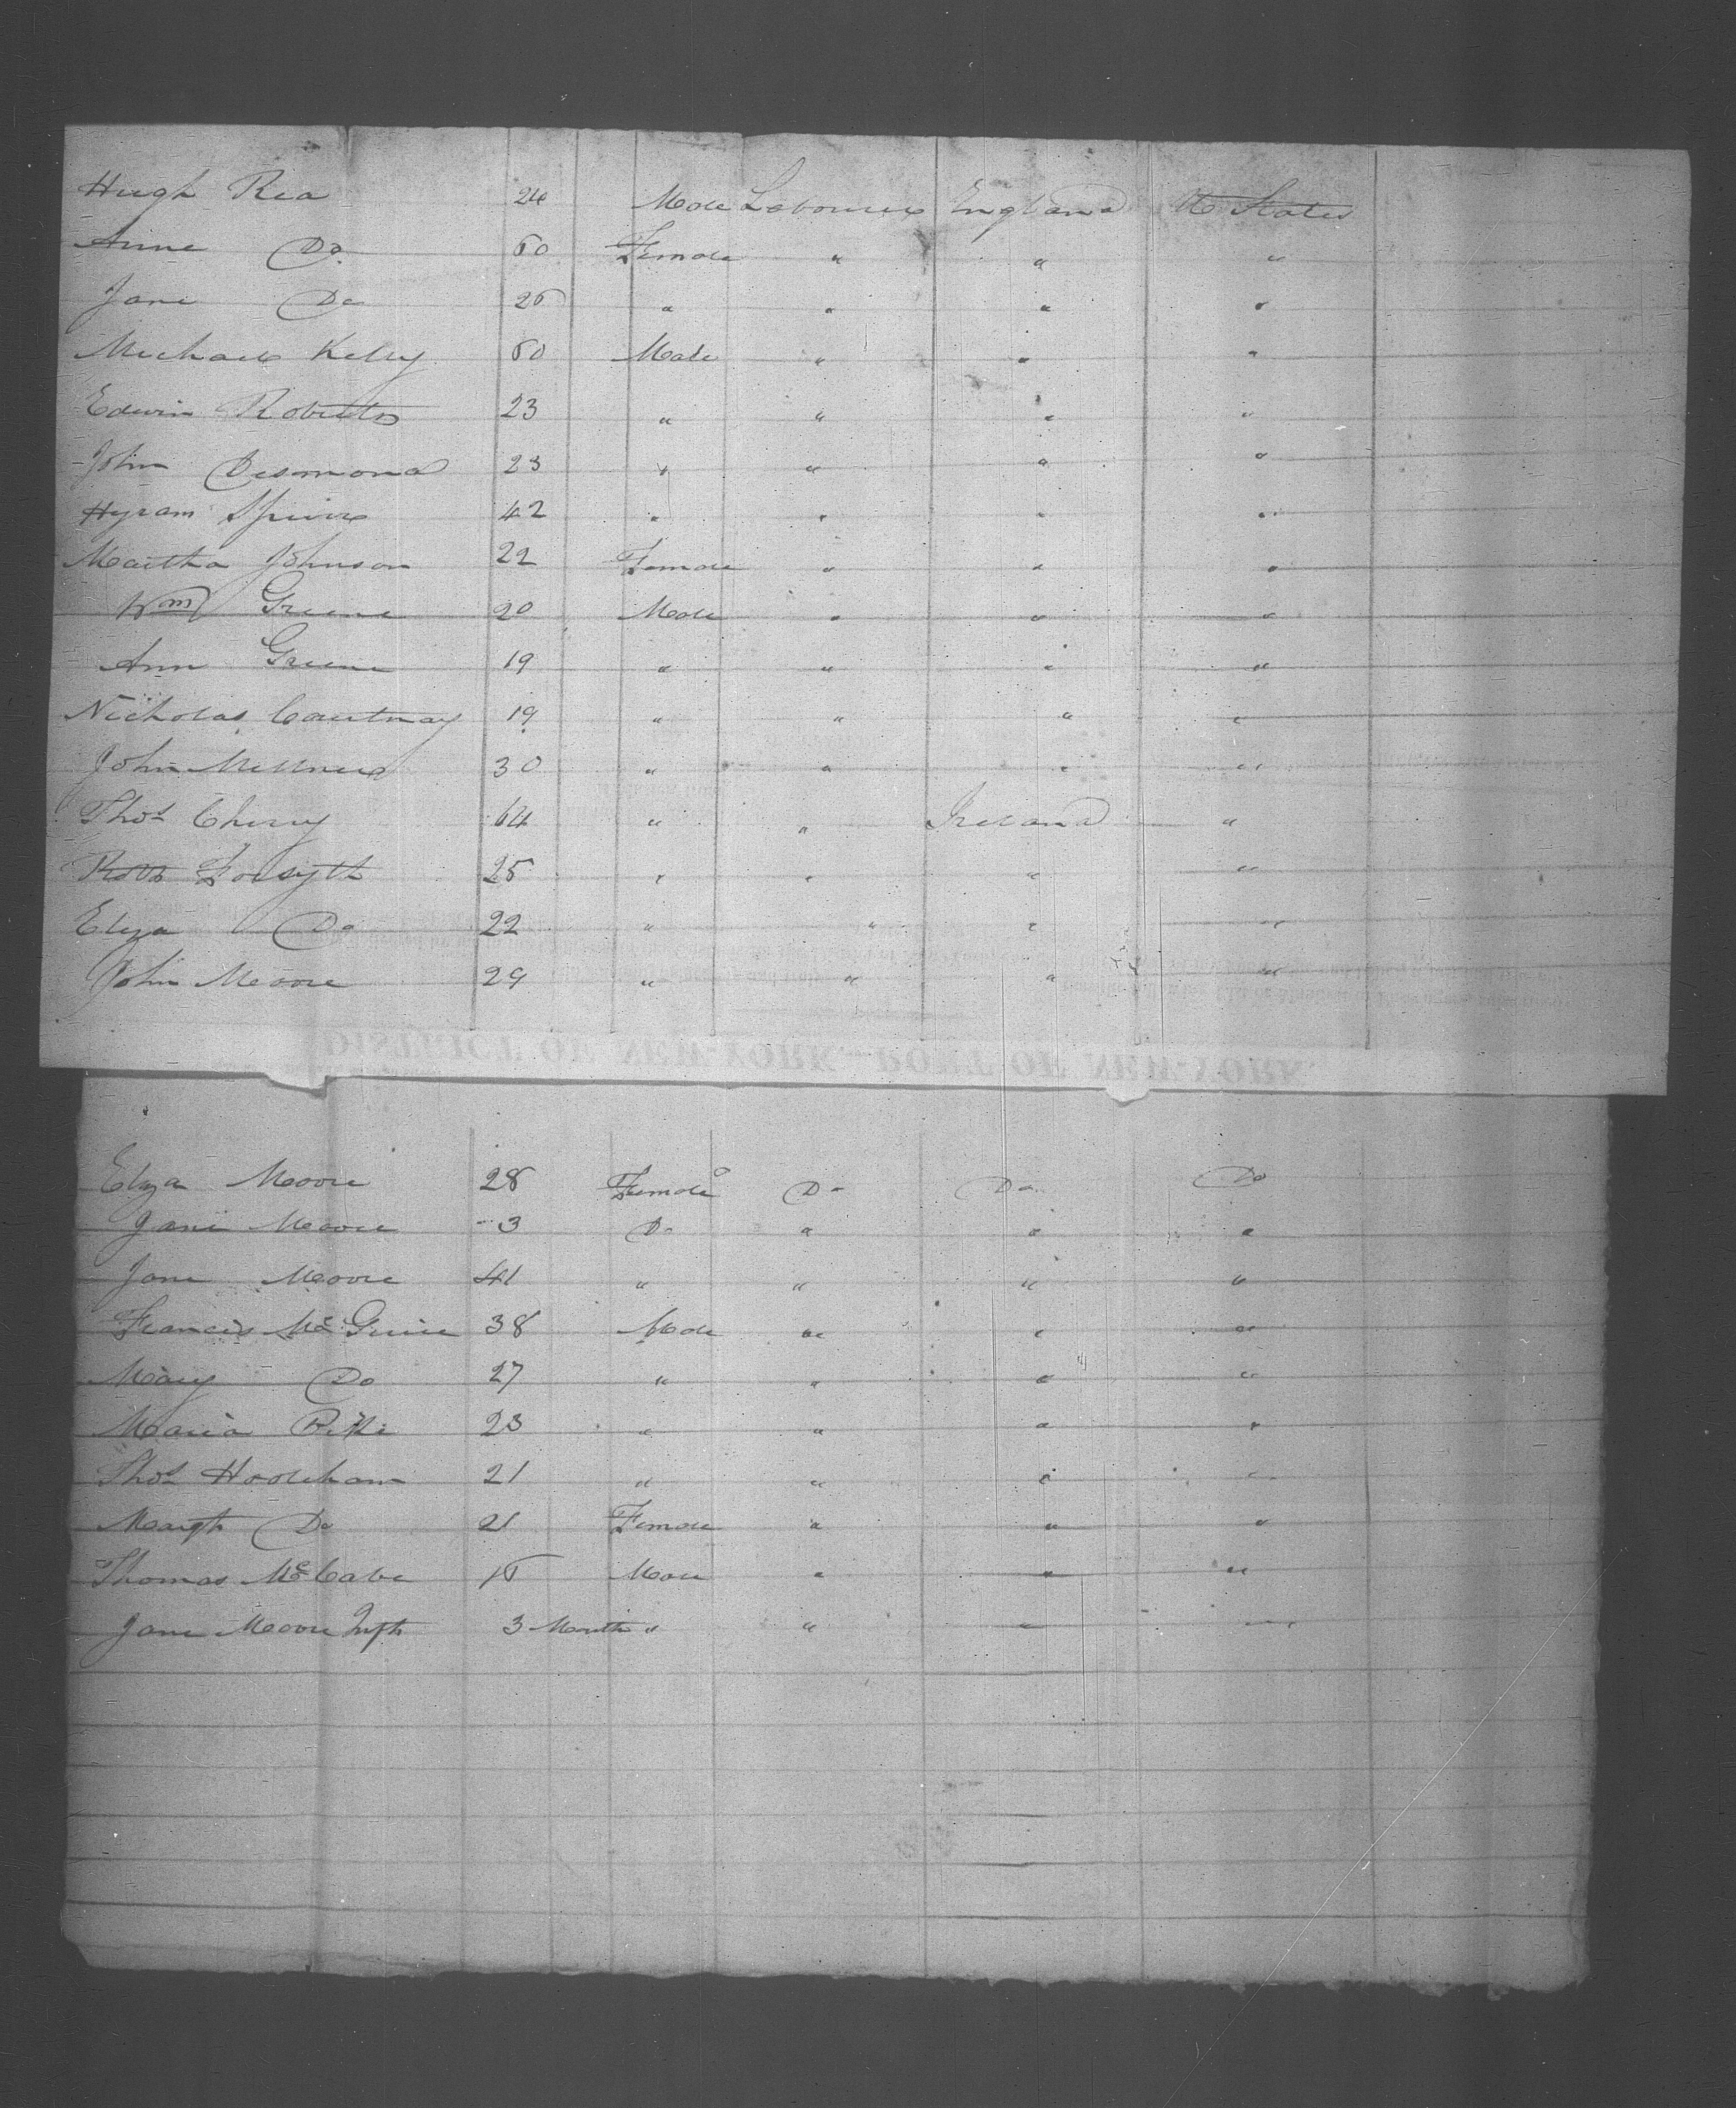 Hugh Rea 24 Male Labourer England U States
Anne Do 60 Female " " "
Jane Do 26 " " " "
Michael Kelly 60 Male " " "
Edwin Roberts 23 " " " "
John Desmond 23 " " " "
Hyram 42 " " " "
Martha Johnson 22 Female " " "
Wm Greene 20 Male " " "
Ann Greene 19 " " " "
Nicholas Courtnay 19 " " " "
John 30 " " " "
Thos Cherry 64 " " Ireland "
Robt Forsyth 25 " " " "
Eliza Do 22 " " " "
John Moore 29 " " " "
DISTRICT OF NEW-YORK—PORT OF NEW-YORK
Eliza Moore 28 Female Do Do Do
Jane Moore 3 Do " " "
Jane Moore 41 " " " "
Francis McGuire 38 Male " " "
Mary Do 27 " " " "
Maria 23 " " " "
Thos 21 " " " "
Margt Do 21 Female " " "
Thomas McCabe 16 Male " " "
Jane Moore Inft 3 Months " " " "